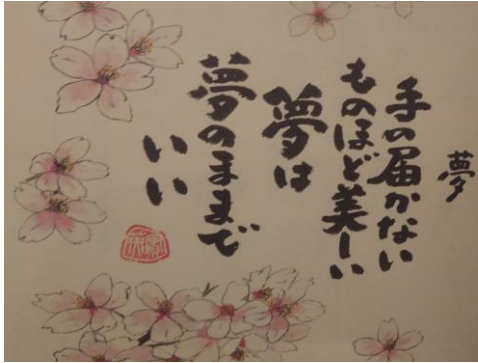 夢
手の届かない
ものほど美しい
夢は
夢のままで
いい